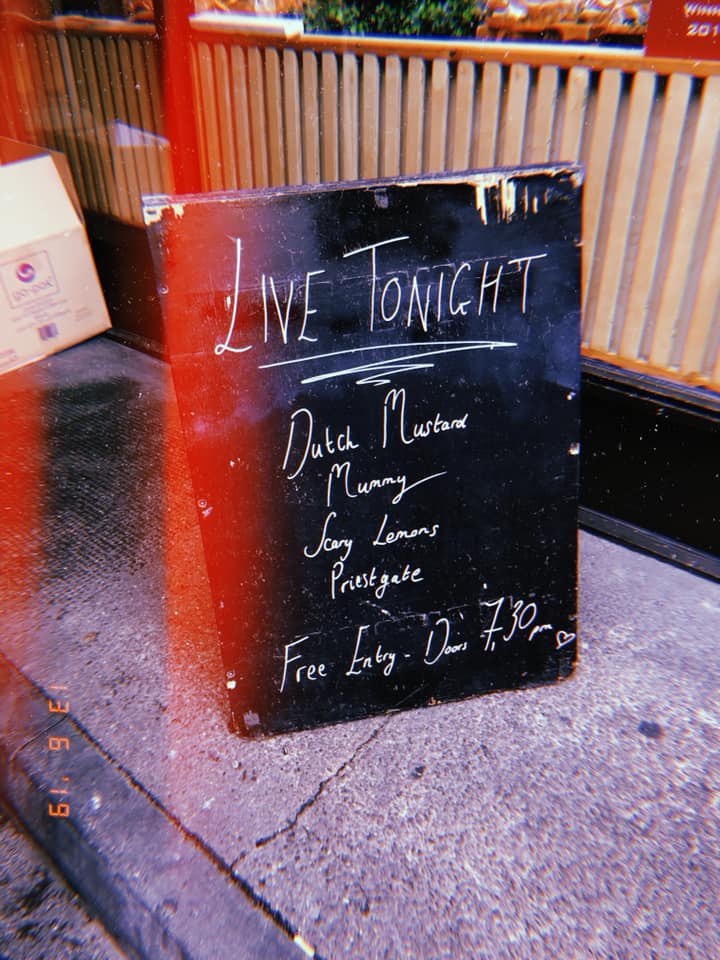 WIN
201
LIVE TONIGHT
Dutch Mustard
Mummy
Scary Lemons
Priestgate
Free Entry - Doors 7.30pm
13 6 '19